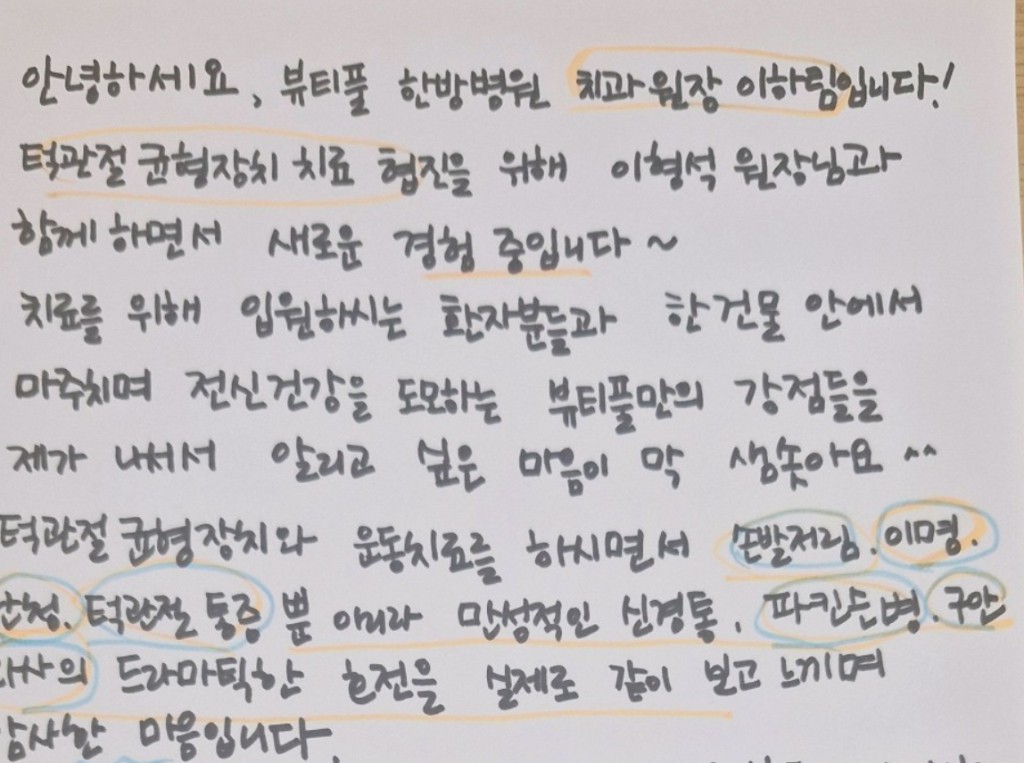 안녕하세요, 뷰티풀 한방병원 치과원장 이하림입니다!
턱관절 균형장치 치료 협진을 위해 이형석 원장님과
함께 하면서 새로운 경험 중입니다~
치료를 위해 입원하시는 환자분들과 한건물 안에서
마주치며 전신건강을 도모하는 뷰티풀만의 강점들을
제가 나서서 알리고 싶은 마음이 막 샘솟아요^^
턱관절 균형장치와 운동치료를 하시면서 손발저림, 이명,
난청, 턱관절 통증 뿐 아니라 만성적인 신경통, 파킨슨병, 구안
와사의 드라마틱한 호전을 실제로 같이 보고 느끼며
감사한 마음입니다.